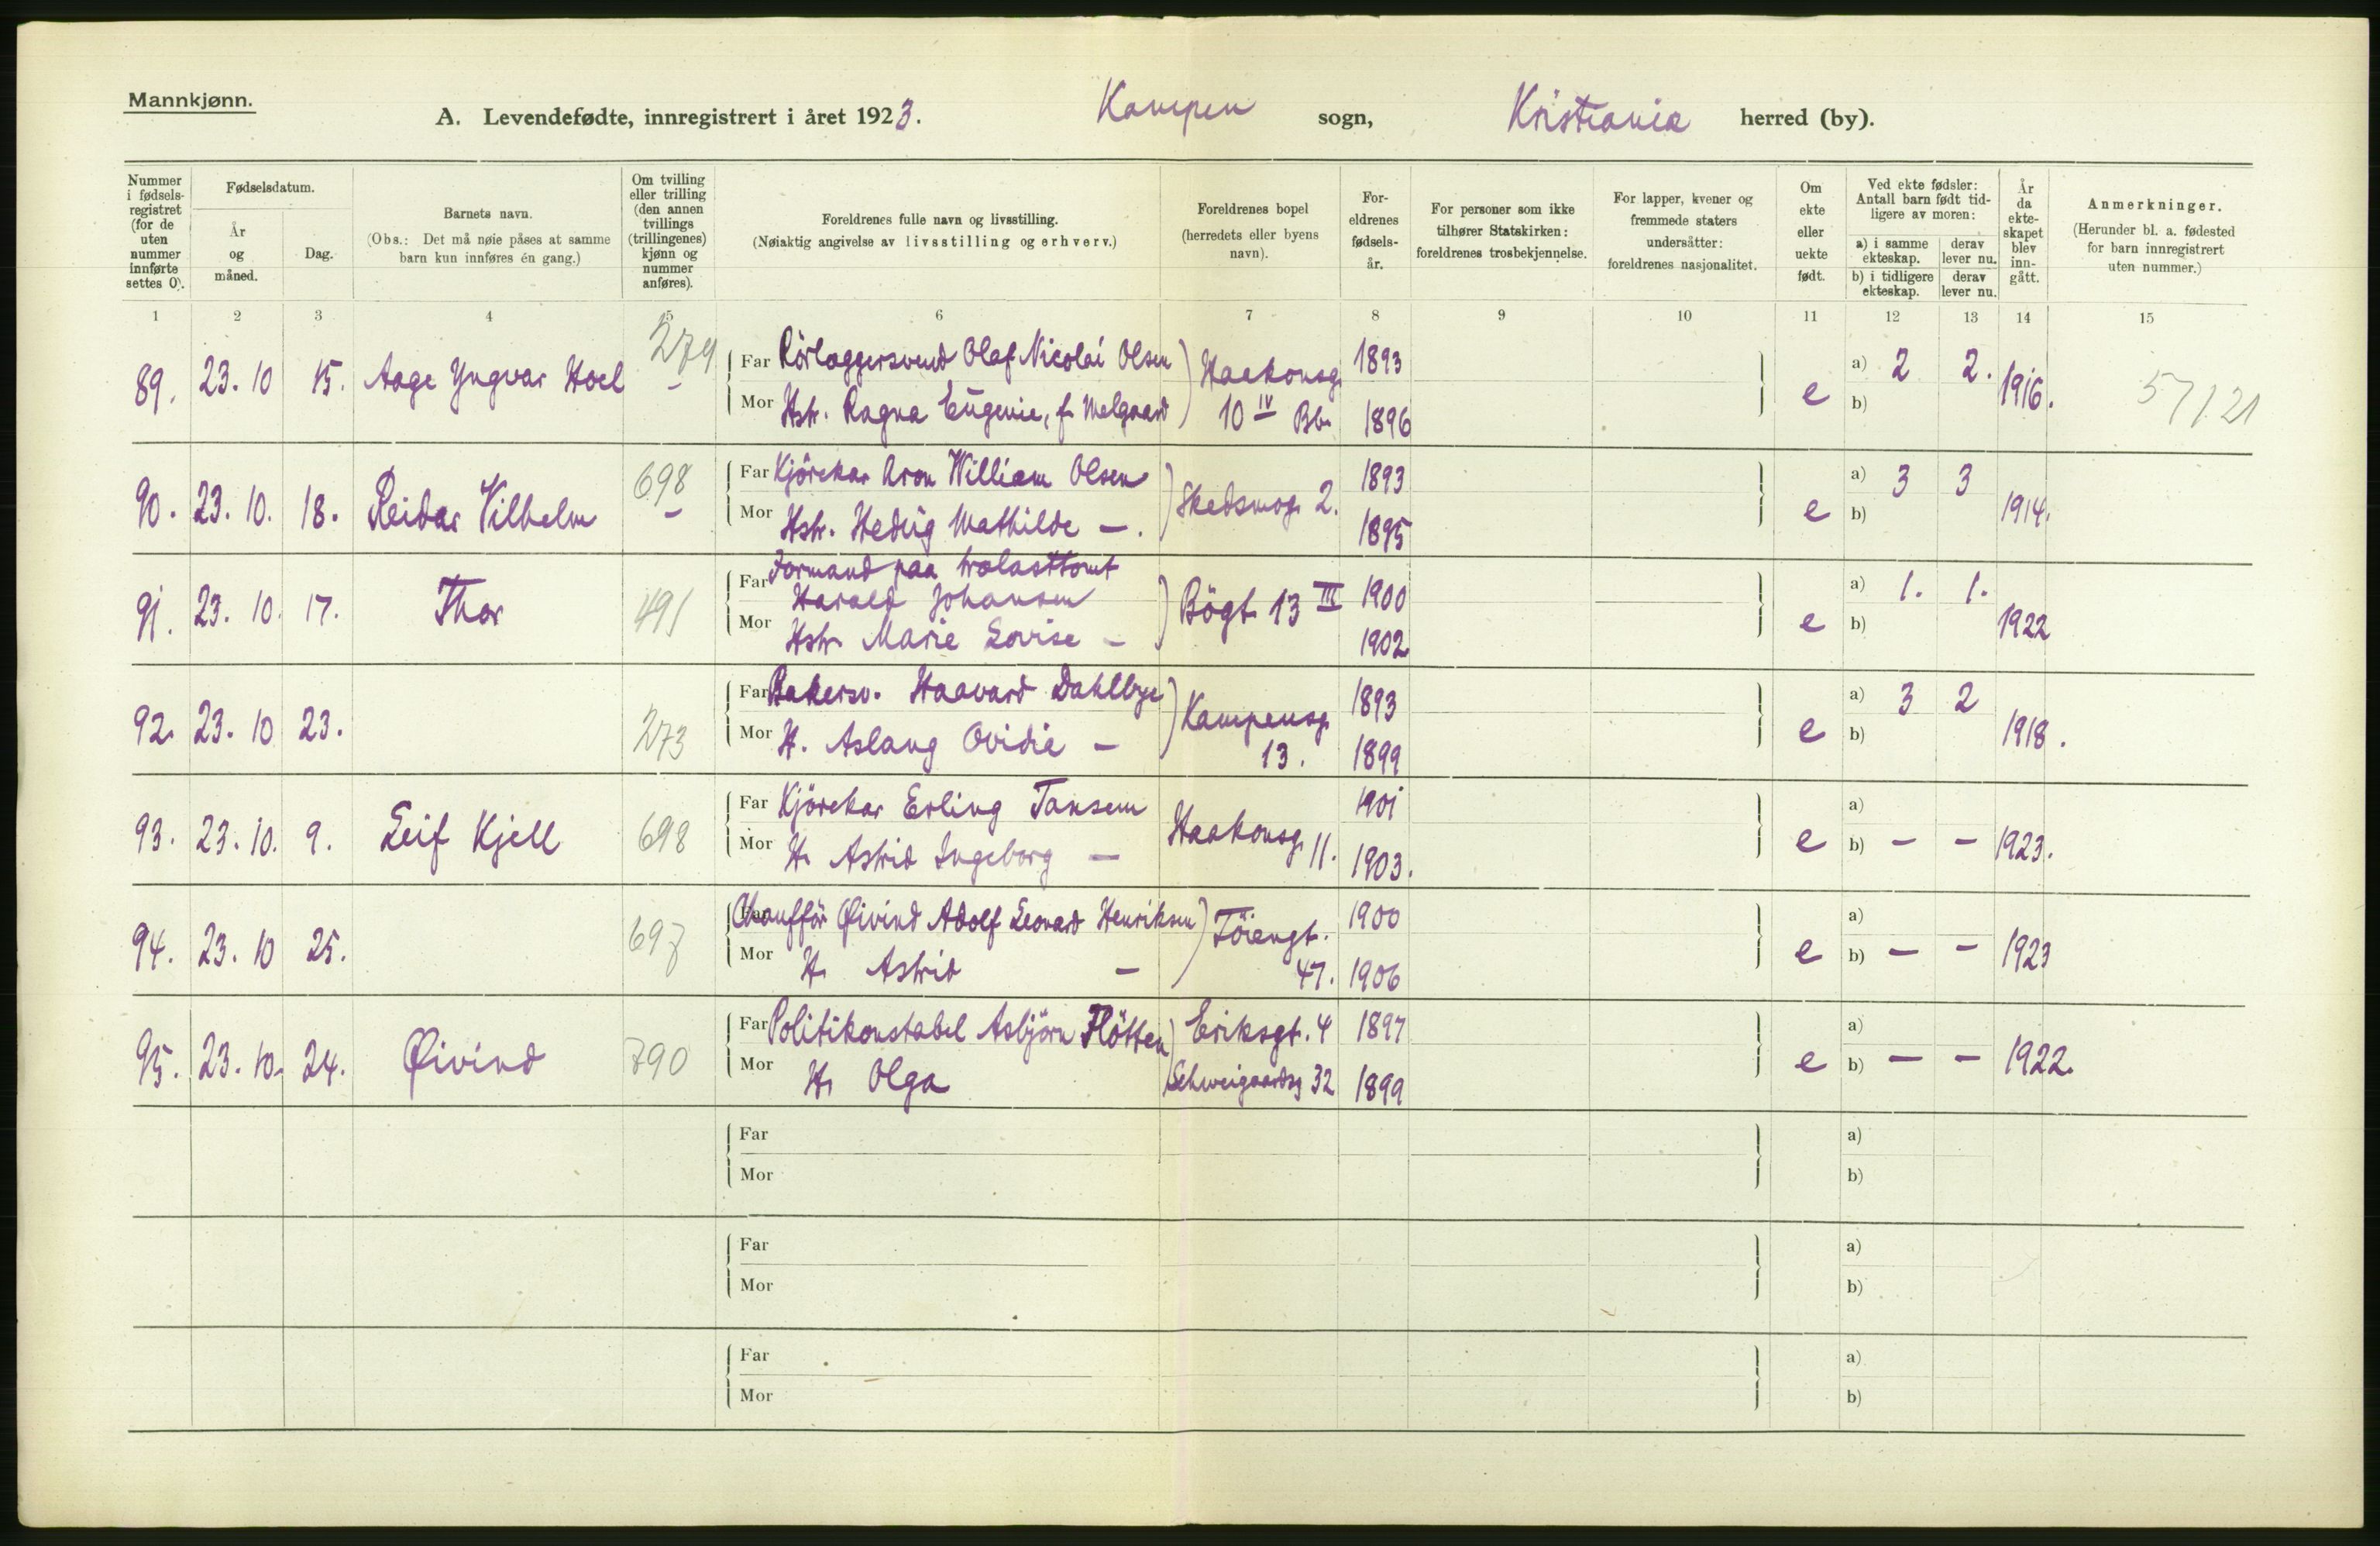 Mannkjønn.
A. Levendefødte, innregistrert i året 1923. Kampen sogn, Kristiania herred (by).
Nummer i fødsels-registret (for de uten nummer innførte settes 0).
Fødselsdatum.
År og måned.
Dag.
Barnets navn.
(Obs.: Det må nøie påses at samme barn kun innføres én gang.)
Om tvilling eller trilling (den annen tvillings (trillingenes) kjønn og nummer anføres).
Foreldrenes fulle navn og livsstilling.
(Nøiaktig angivelse av livsstilling og erhverv.)
Foreldrenes bopel (herredets eller byens navn).
For-eldrenes fødsels-år.
For personer som ikke tilhører Statskirken: foreldrenes trosbekjennelse.
For lapper, kvener og fremmede staters undersåtter: foreldrenes nasjonalitet.
Om ekte eller uekte født.
Ved ekte fødsler: Antall barn født tid-ligere av moren:
a) i samme ekteskap. derav lever nu.
b) i tidligere ekteskap. derav lever nu.
År da ekte-skapet blev inn-gått.
Anmerkninger.
(Herunder bl. a. fødested for barn innregistrert uten nummer.)
1 2 3 4 5 6 7 8 9 10 11 12 13 14 15
89. 23. 10 15. Aage Yngvar Hoel 279 Far Rörlæggersvend Olaf Nicolai Olsen Haakonsg. 1893 e a) 2 2. 1916. 57121
Mor Hstr. Ragna Eugenie, f. Melgaard 10 IV Bb. 1896 b)
90. 23. 10. 18. Reidar Vilhelm 698 Far Kjörekar Aron William Olsen Skedsmog. 2. 1893 e a) 3 3 1914.
Mor Hstr. Hedvig Mathilde —. 1895 b)
91. 23. 10. 17. Thor 491 Far Formand paa trælasttomt
Harald Johansen Bögt. 13 III 1900 e a) 1. 1. 1922
Mor Hstr. Marie Lovise — 1902 b)
92. 23. 10 23. 273 Far Bakersv. Haavard Dahlbye Kampensg. 1893 e a) 3 2 1918.
Mor H. Aslaug Ovidia — 13. 1899 b)
93. 23. 10. 9. Leif Kjell 698 Far Kjörekar Erling Jansen Haakonsg. 11. 1901 e a)
Mor H. Astrid Ingeborg — 1903. b) — — 1923.
94. 23. 10 25. 697 Far Chafför Øivind Adolf Leonard Henriksen Töiengt. 1900 e a)
Mor H. Astrid — 47. 1906 b) — — 1923
95. 23. 10. 24. Øivind 790 Far Politikonstabel Asbjörn Flötten Eriksgt. 4 1897 e a)
Mor H. Olga Schweigaardsg 32 1899 b) — — 1922.
Far a)
Mor b)
Far a)
Mor b)
Far a)
Mor b)